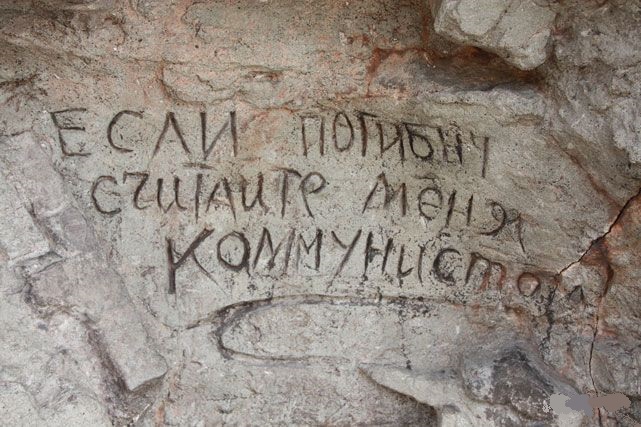 если погибну
считайте меня
коммунистом